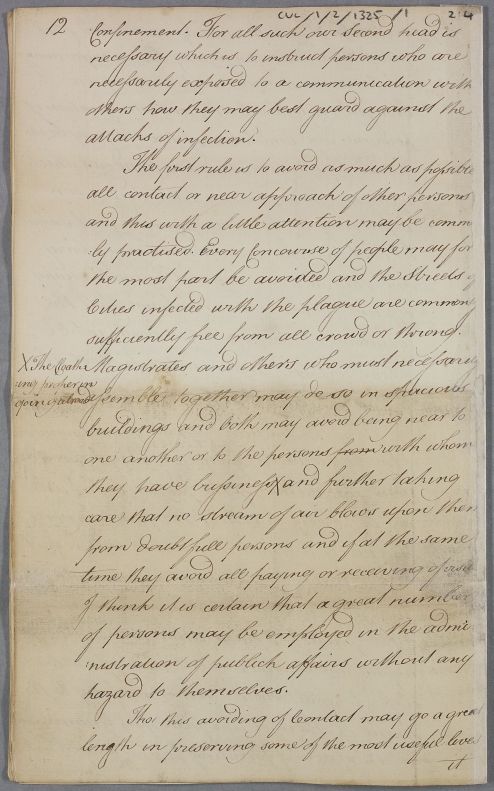 12
CUL/1/2/1325/1
Confinement. For all such our Second head is
necessary which is to instruct persons who are
necessarily exposed to a communication with
others how they may best guard against the
attacks of infection.
The first rule is to avoid as much as possible
all contact or near approach of other persons
and this with a little attention may be comm
ly practised. Every Concourse of people may for
the most part be avoided and the Streets of
Cities infected with the plague are commonly
sufficiently free from all crowd or throng.
Magistrates and others who must necessarily
assemble together may do so in spacious
buildings and both may avoid being near to
one another or to the persons from with whom
they have bussiness X and further taking
care that no stream of air blows upon them
from doubtfull persons and if at the same
time they avoid all paying or receiving of
I think it is certain that a great number
of persons may be employed in the admi
nistration of publick affairs without any
hazard to themselves.
Tho this avoiding of Contact may go a great
length in preserving some of the most useful lives
it
X The Cloath
ing proper in
going abroad